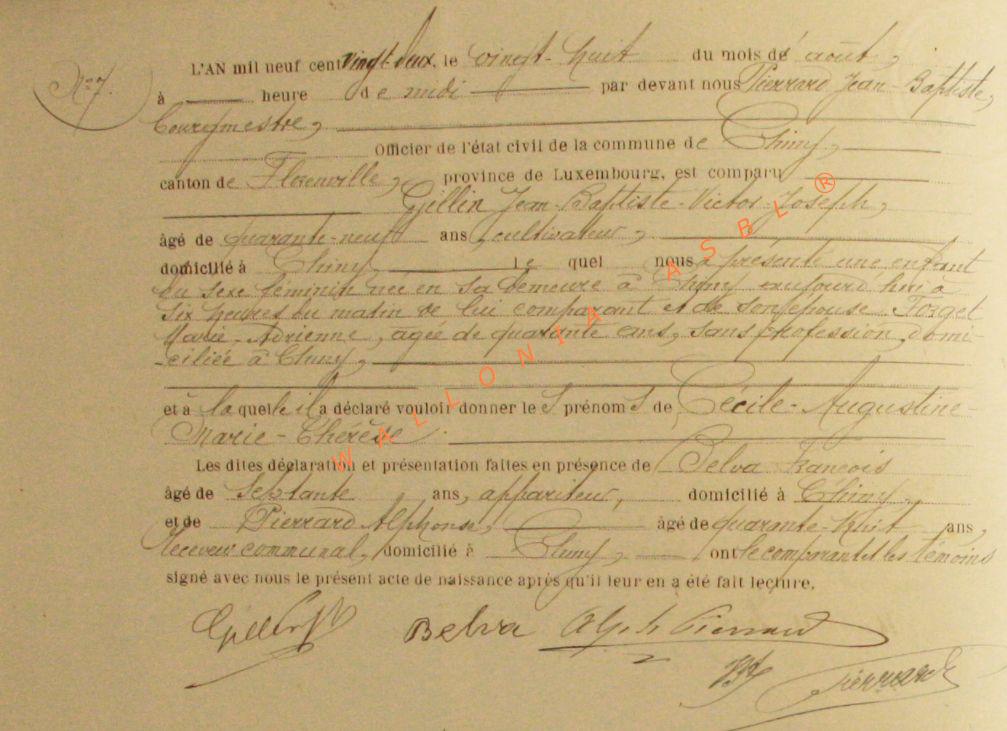 N° 7.
L'AN mil neuf cent vingt-deux, le vingt-huit du mois de août,
à heure de midi par devant nous Pierrard Jean-Baptiste,
bourgmestre,
Officier de l'état civil de la commune de Chiny,
canton de Florenville, province de Luxembourg, est comparu
Gillin Jean-Baptiste-Victor-Joseph,
âgé de quarante-neuf ans, cultivateur,
domicilié à Chiny, le quel nous a présenté une enfant
du sexe féminin née en sa demeure à Chiny aujourd'hui à
six heures du matin de lui comparant et de son épouse Forget
Marie-Adrienne, agée de quarante ans, sans profession, domi-
-ciliée à Chiny,
et à laquelle il a déclaré vouloir donner les prénoms de Cécile-Augustine-
Marie-Thérèse.
Les dites déclaration et présentation faites en présence de Belva François
âgé de septante ans, appariteur, domicilié à Chiny,
et de Pierrard Alphonse, âgé de quarante-huit ans,
receveur communal, domicilié à Chiny, ont le comparant et les témoins
signé avec nous le présent acte de naissance après qu'il leur en a été fait lecture.
Belva Alph Pierrard
Pierrard
WALLONIA ASBL ®